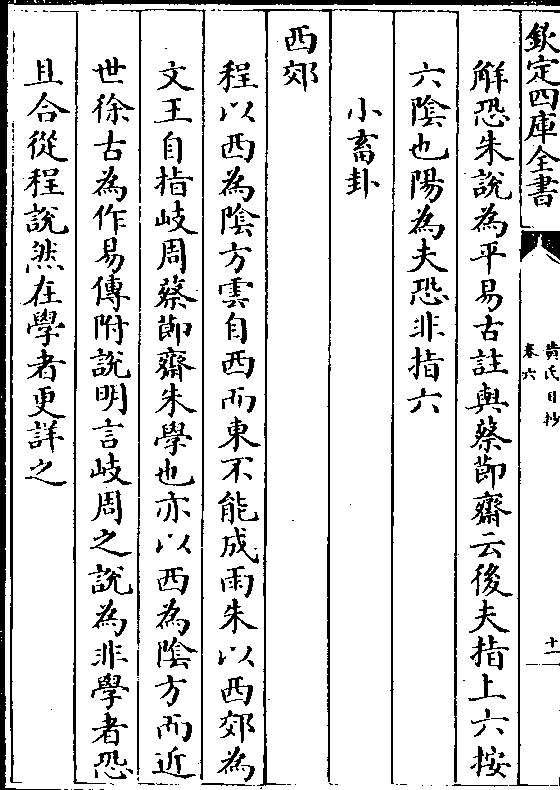 欽定四庫全書
黃氏日抄
卷六
十一
解恐朱說為平易古註與蔡節齋云後夫指上六按
六陰也陽為夫恐非指六
小畜卦
西郊
程以西為陰方雲自西而東不能成雨朱以西郊為
文王自指岐周蔡節齋朱學也亦以西為陰方而近
世徐古為作易傳附說明言岐周之說為非學者恐
且合從程說然在學者更詳之